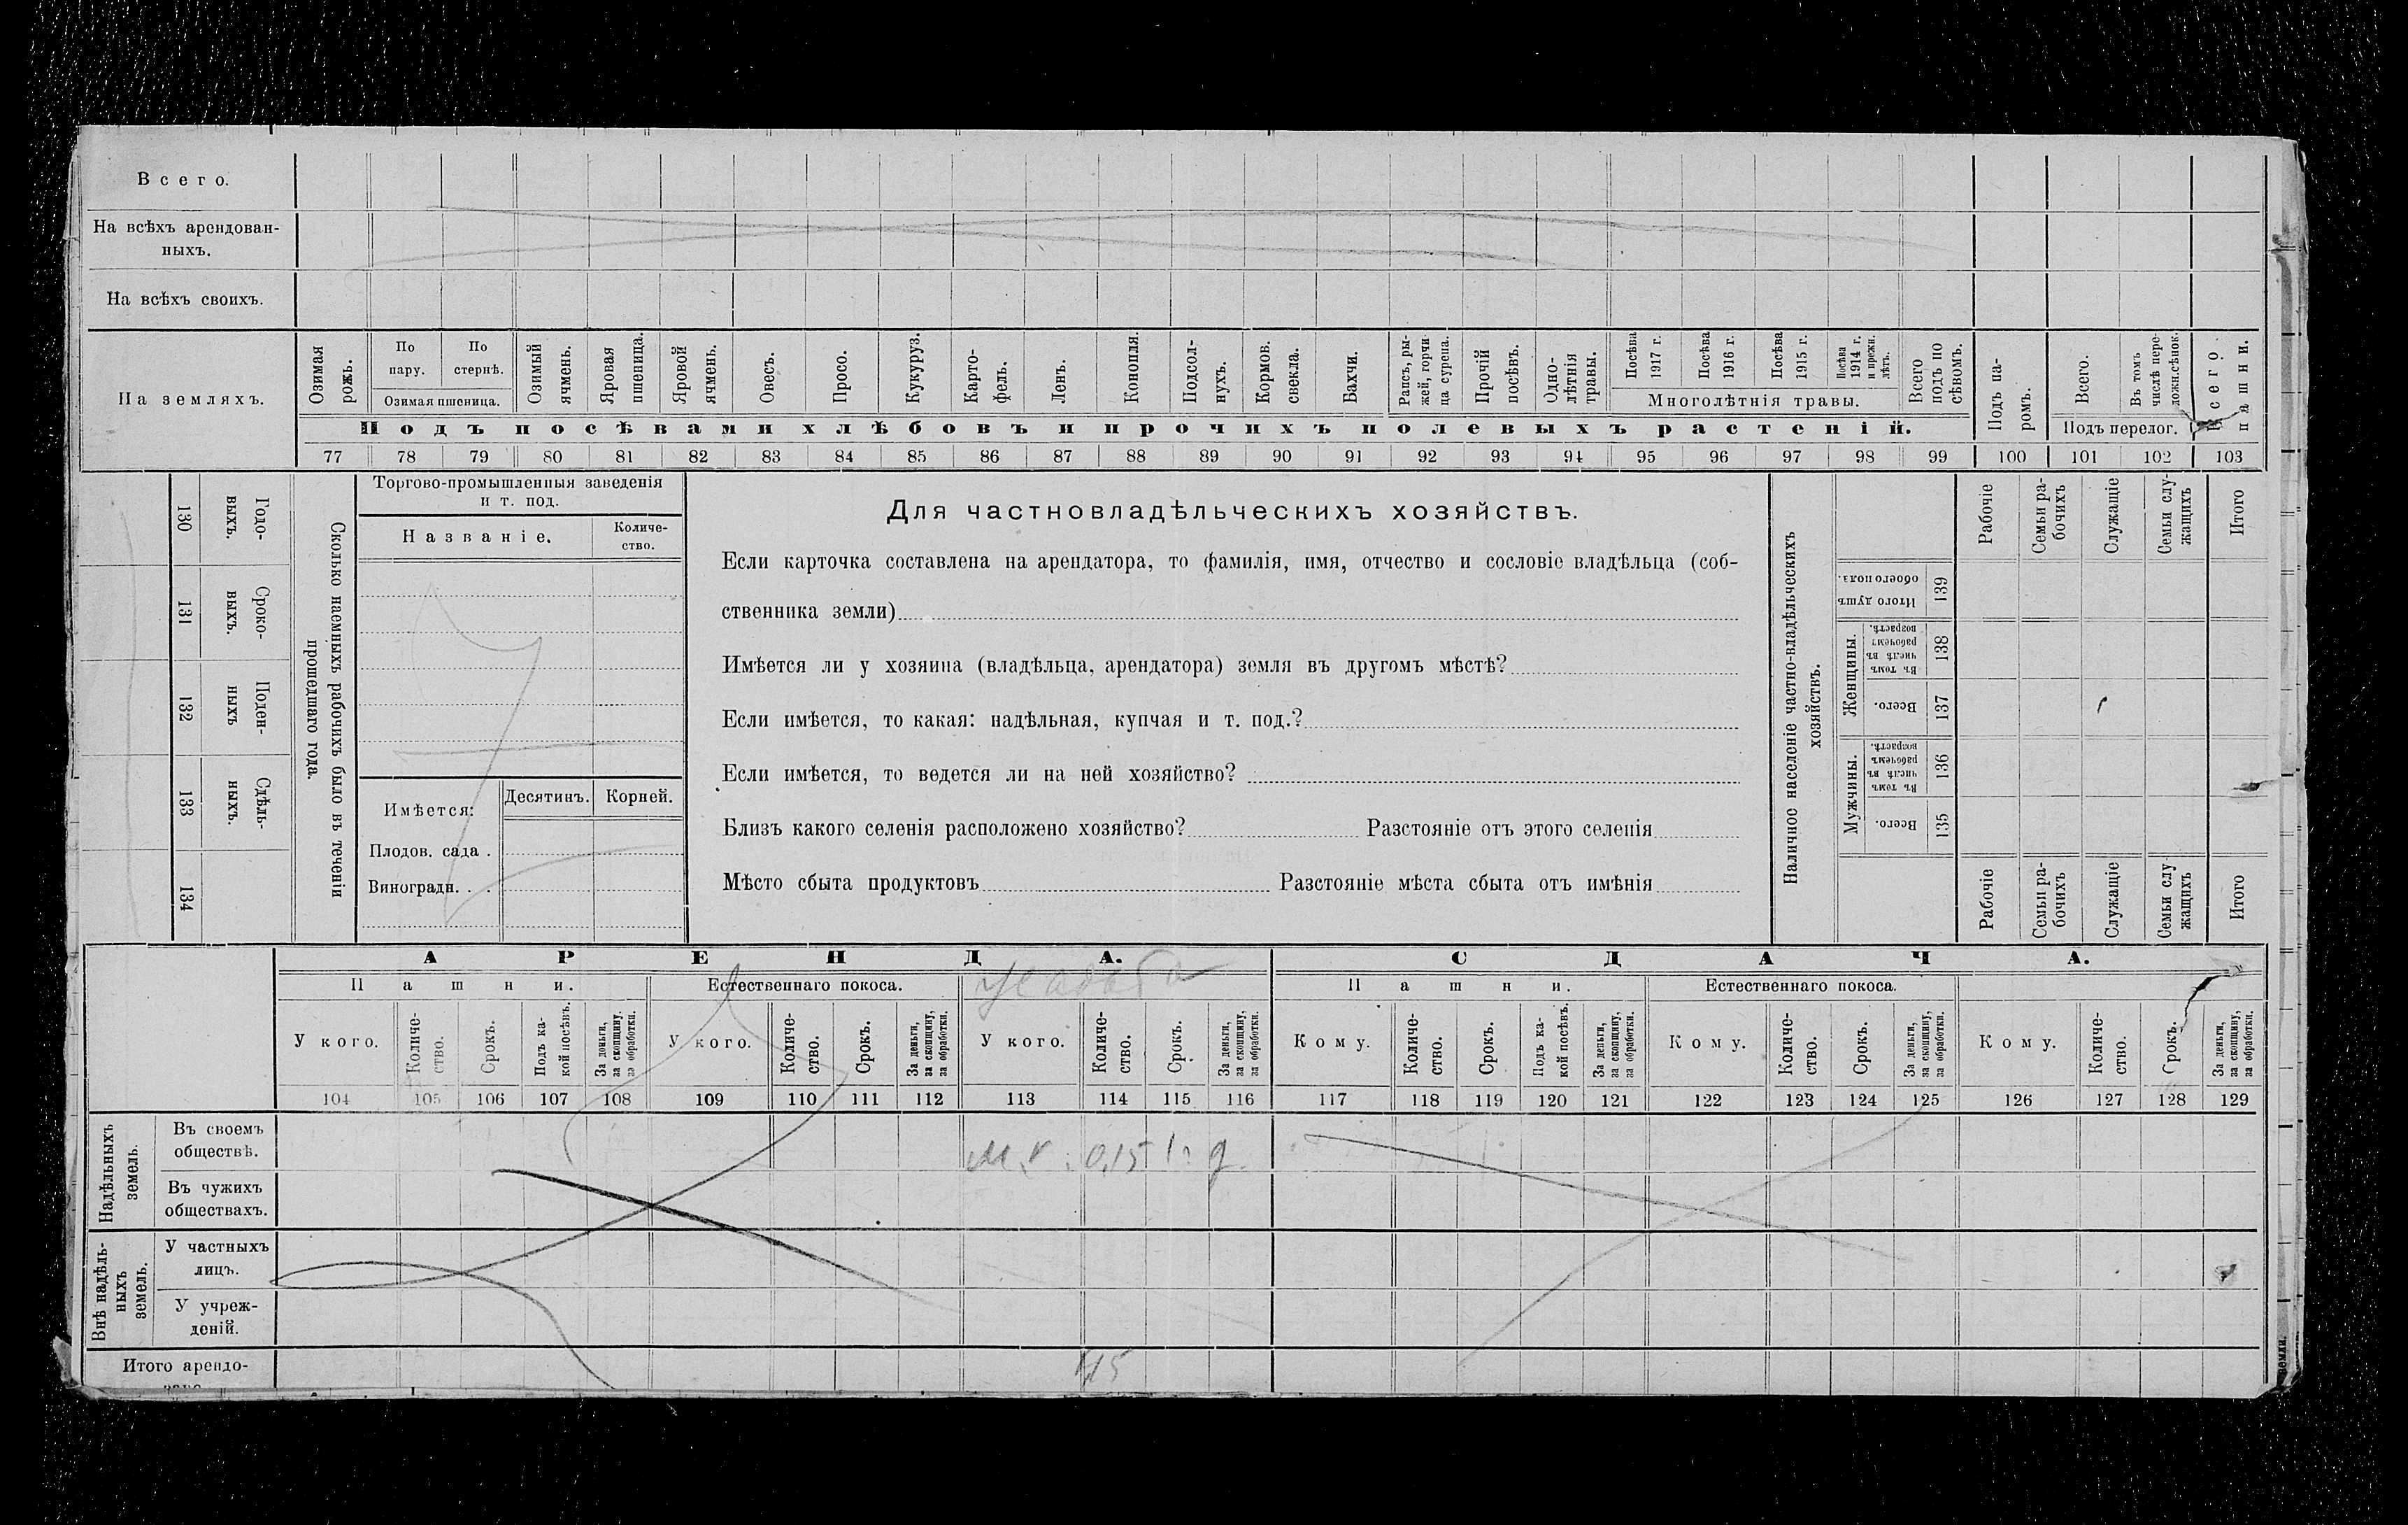 Всего.
На всѣхъ арендован-
ныхъ.
На всѣхъ своихъ.
На земляхъ.
Озимая рожь.
По пару.
По стернѣ.
Озимая пшеница.
Озимый ячмень.
Яровая пшеница.
Яровой ячмень.
Овесъ.
Просо.
Кукуруз.
Карто-
фель.
Ленъ.
Конопля.
Подсол-
нухъ.
Кормов. свекла.
Бахчи.
Рапсъ, ры-
жей, горчи-
ца сурепа.
Прочій посѣвъ.
Одно-
лѣтнія травы.
Посѣва 1917 г.
Посѣва 1916 г.
Посѣва 1915 г.
Посѣва 1914 г. и прежн. лѣтъ.
Многолѣтнія травы.
Всего подъ по
сѣвомъ.
Подъ па-
ромъ.
Всего.
Въ томъ числѣ пере-
ложн.сѣнок.
Подъ перелог.
Всего пашни.
Подъ посѣвами хлѣбовъ и прочихъ полевыхъ растеній.
77 78 79 80 81 82 83 84 85 86 87 88 89 90 91 92 93 94 95 96 97 98 99 100 101 102 103
130 Годо-
выхъ.
131 Сроко-
выхъ.
132 Поден-
ныхъ
133 Сдѣль-
ныхъ.
134
Сколько наемныхъ рабочихъ было въ теченіи
прошедшаго года.
Торгово-промышленныя заведенія
и т. под.
Названіе.
Количе-
ство.
Имѣется:
Десятинъ.
Корней.
Плодов. сада .
Виноградн. . .
Для частновладѣльческихъ хозяйствъ.
Если карточка составлена на арендатора, то фамилія, имя, отчество и сословіе владѣльца (соб-
ственника земли)
Имѣется ли у хозяина (владѣльца, арендатора) земля въ другомъ мѣстѣ?
Если имѣется, то какая: надѣльная, купчая и т. под.?
Если имѣется, то ведется ли на ней хозяйство?
Близъ какого селенія расположено хозяйство? Разстояніе отъ этого селенія
Мѣсто сбыта продуктовъ Разстояніе мѣста сбыта отъ имѣнія
Наличное населеніе частно-владѣльческихъ
хозяйствъ.
Рабочіе
Семьи ра-
бочихъ
Служащіе
Семьи слу-
жащихъ
Итого
Итого душъ обоего пола. 139
Женщины.
Въ томъ числѣ въ рабочемъ возрастѣ. 138
Всего. 137
Мужчины.
Въ томъ числѣ въ рабочемъ возрастѣ. 136
Всего. 135
Рабочіе
Семьи ра-
бочихъ
Служащіе
Семьи слу
жащихъ
Итого
АРЕНДА.
СДАЧА.
Пашни.
Естественнаго покоса.
усадьба
Пашни.
Естественнаго покоса.
У кого.
Количе-
ство.
Срокъ.
Подъ ка-
кой посѣвъ.
За деньги,
за скопщину,
за обработки.
У кого.
Количе-
ство.
Срокъ.
За деньги,
за скопщину,
за обработки.
У кого.
Количе-
ство.
Срокъ.
За деньги,
за скопщину,
за обработки.
Кому.
Количе-
ство.
Срокъ.
Подъ ка-
кой посѣвъ.
За деньги,
за скопщину,
за обработки.
Кому.
Количе-
ство.
Срокъ.
За деньги,
за скопщину,
за обработки.
Кому.
Количе-
ство.
Срокъ.
За деньги,
за скопщину,
за обработки.
104 105 106 107 108 109 110 111 112 113 114 115 116 117 118 119 120 121 122 123 124 125 126 127 128 129
Надѣльныхъ
земель.
Въ своемъ
обществѣ.
0,15
Въ чужихъ
обществахъ.
Внѣ надѣль-
ныхъ
земель.
У частныхъ
лицъ.
У учреж-
деній.
Итого арендо-
земли.